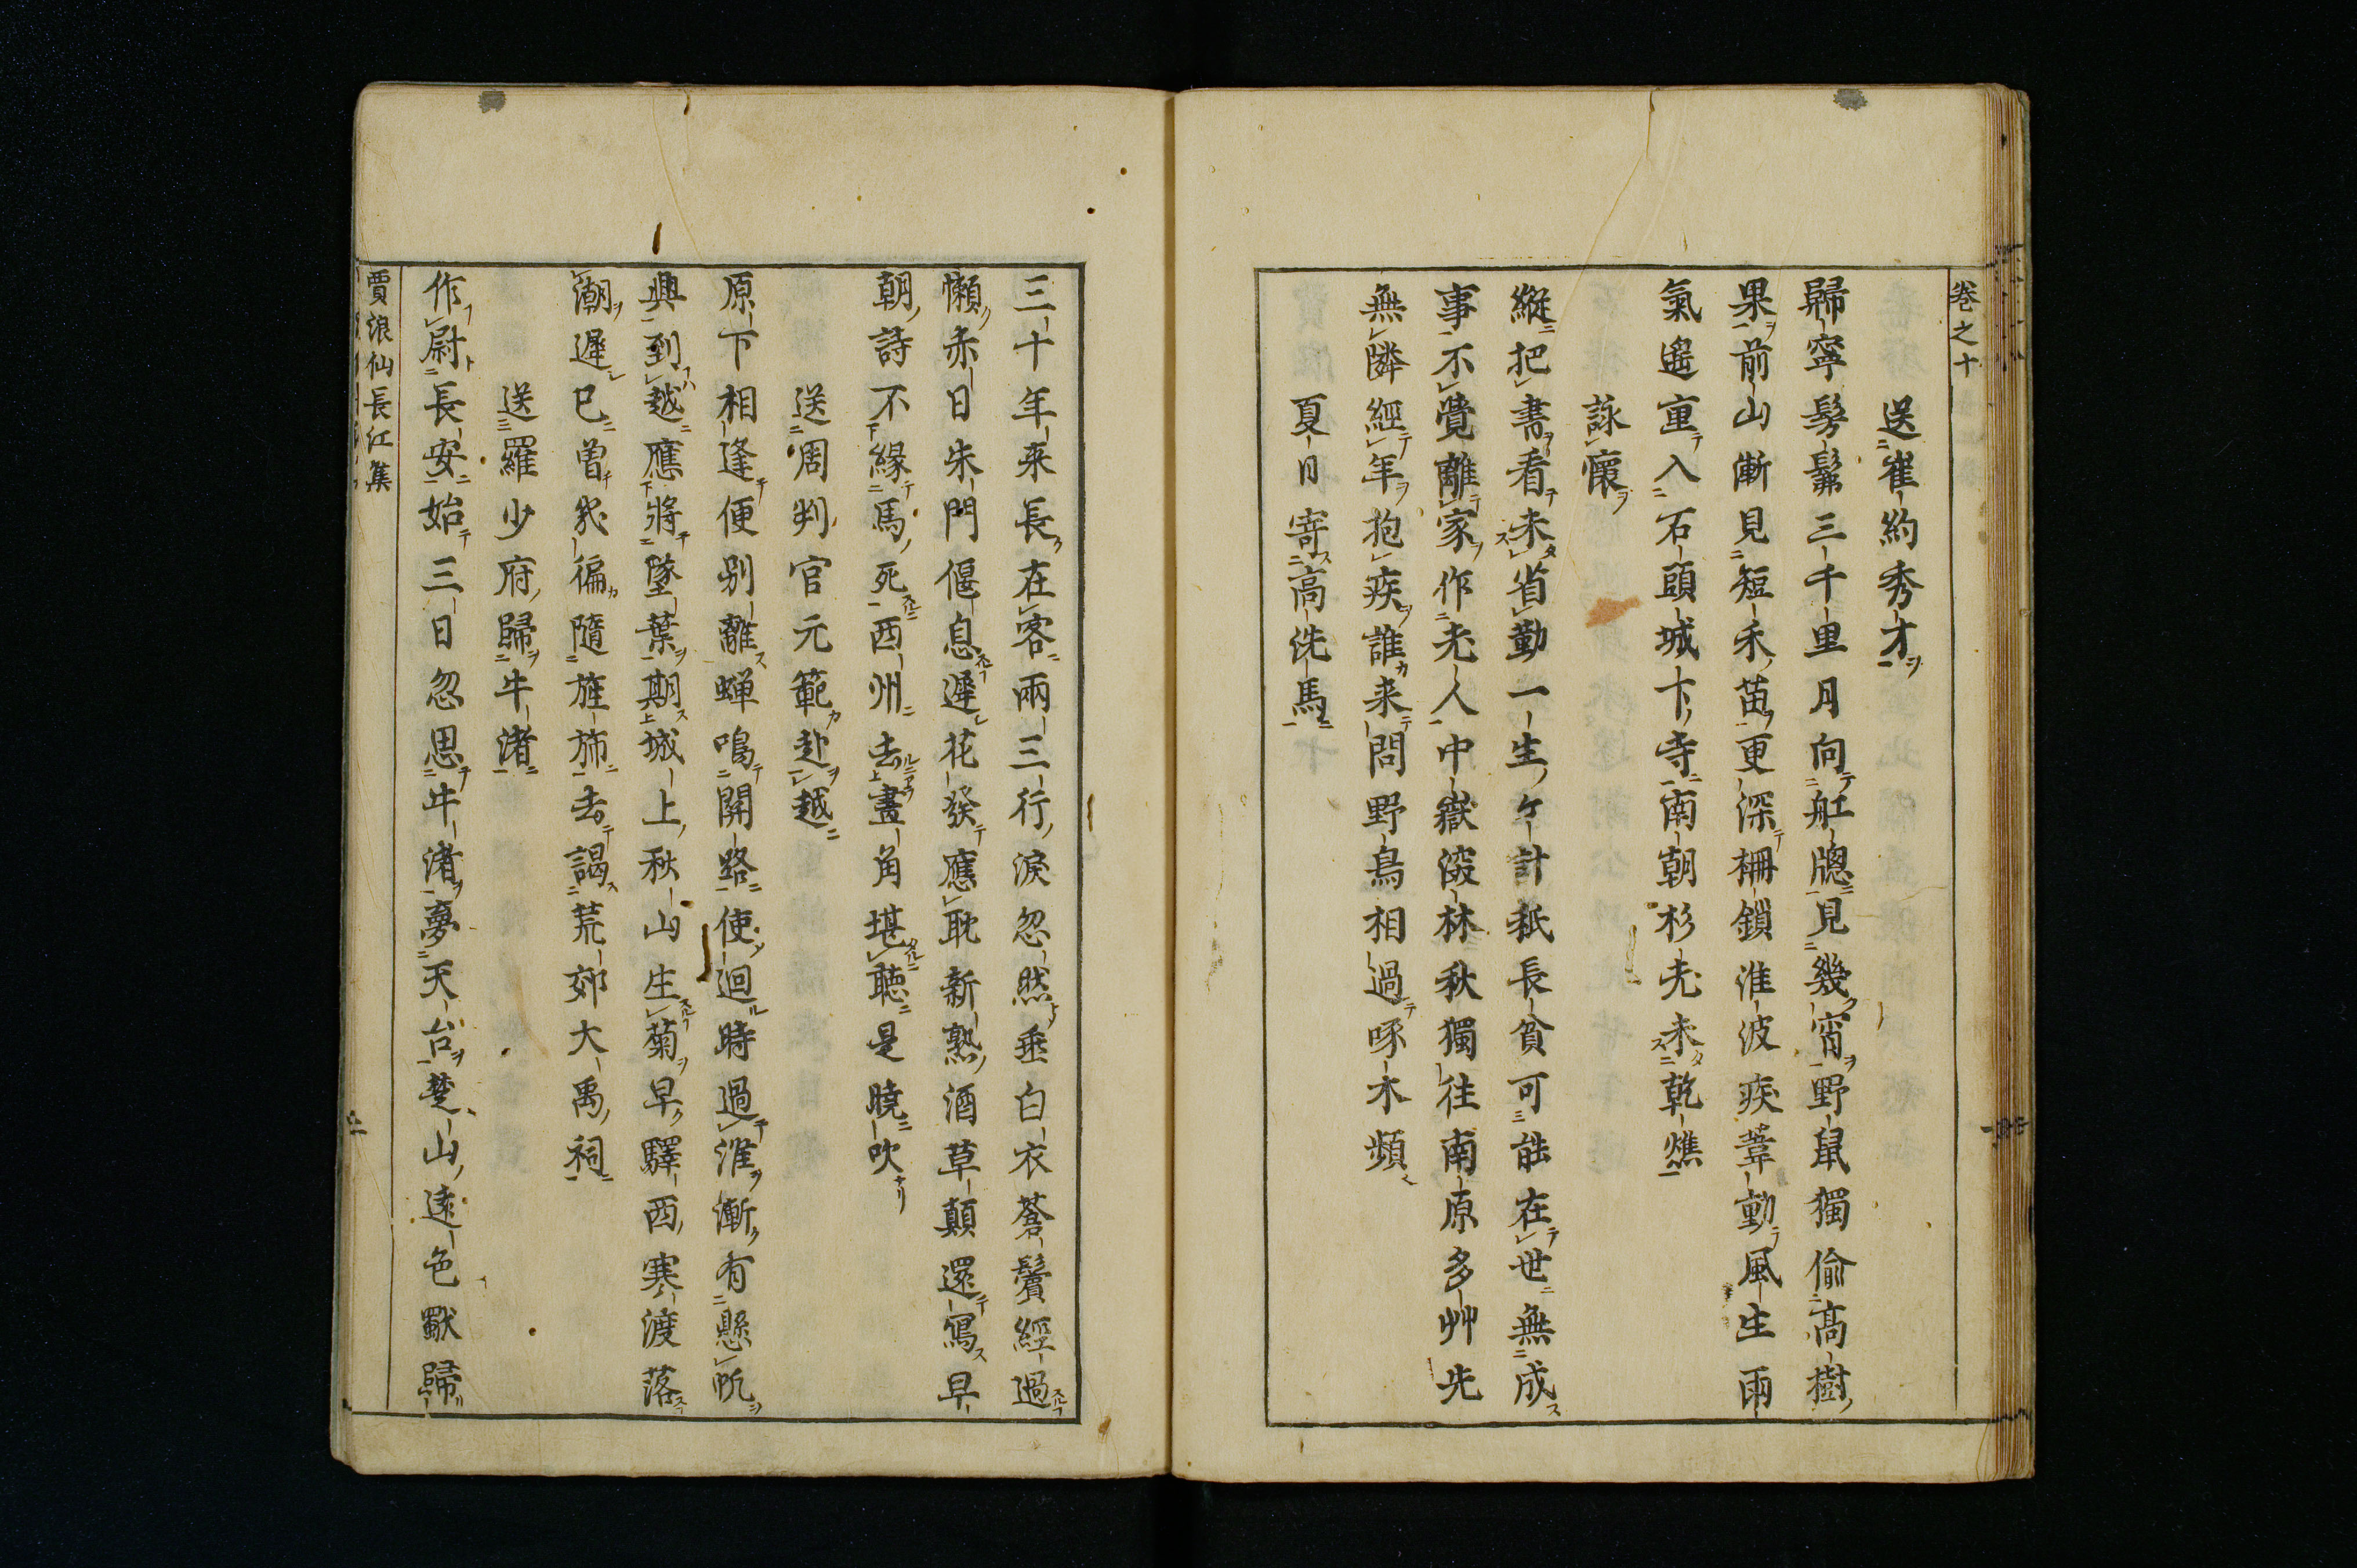 卷之十
送崔約秀才
歸寧髣髴三千里月向舡牕見幾宵野鼠獨偷高樹
果前山漸見短禾苗更深柵鎖淮波疾葦動風生雨
氣遙重入石頭城下寺南朝杉老未乾燋
詠懷
縱把書看未省勤一生生計秪長貧可能在世無成
事不覺離家作老人中嶽深林秋獨往南原多艸夜
無隣經年抱疾誰来問野鳥相過啄木頻
夏日寄高洗馬
三十年来長在客兩三行淚忽然垂白衣蒼鬢經過
懶赤日朱門偃息遲花發應耽新熟酒草顛還寫早
朝詩不緣馬死西州去畫角堪聽是曉吹
送周判官元範赴越
原下相逢便别離蝉鳴關路使迴時過淮漸有懸帆
興到越應將墜葉期城上秋山生菊早驛西寒渡落
潮遲已曽幾徧隨旌斾去謁荒郊大禹祠
送羅少府歸牛渚
作尉長安始三日忽思牛渚夢天台楚山遠色獸歸
賈浪仙長江集